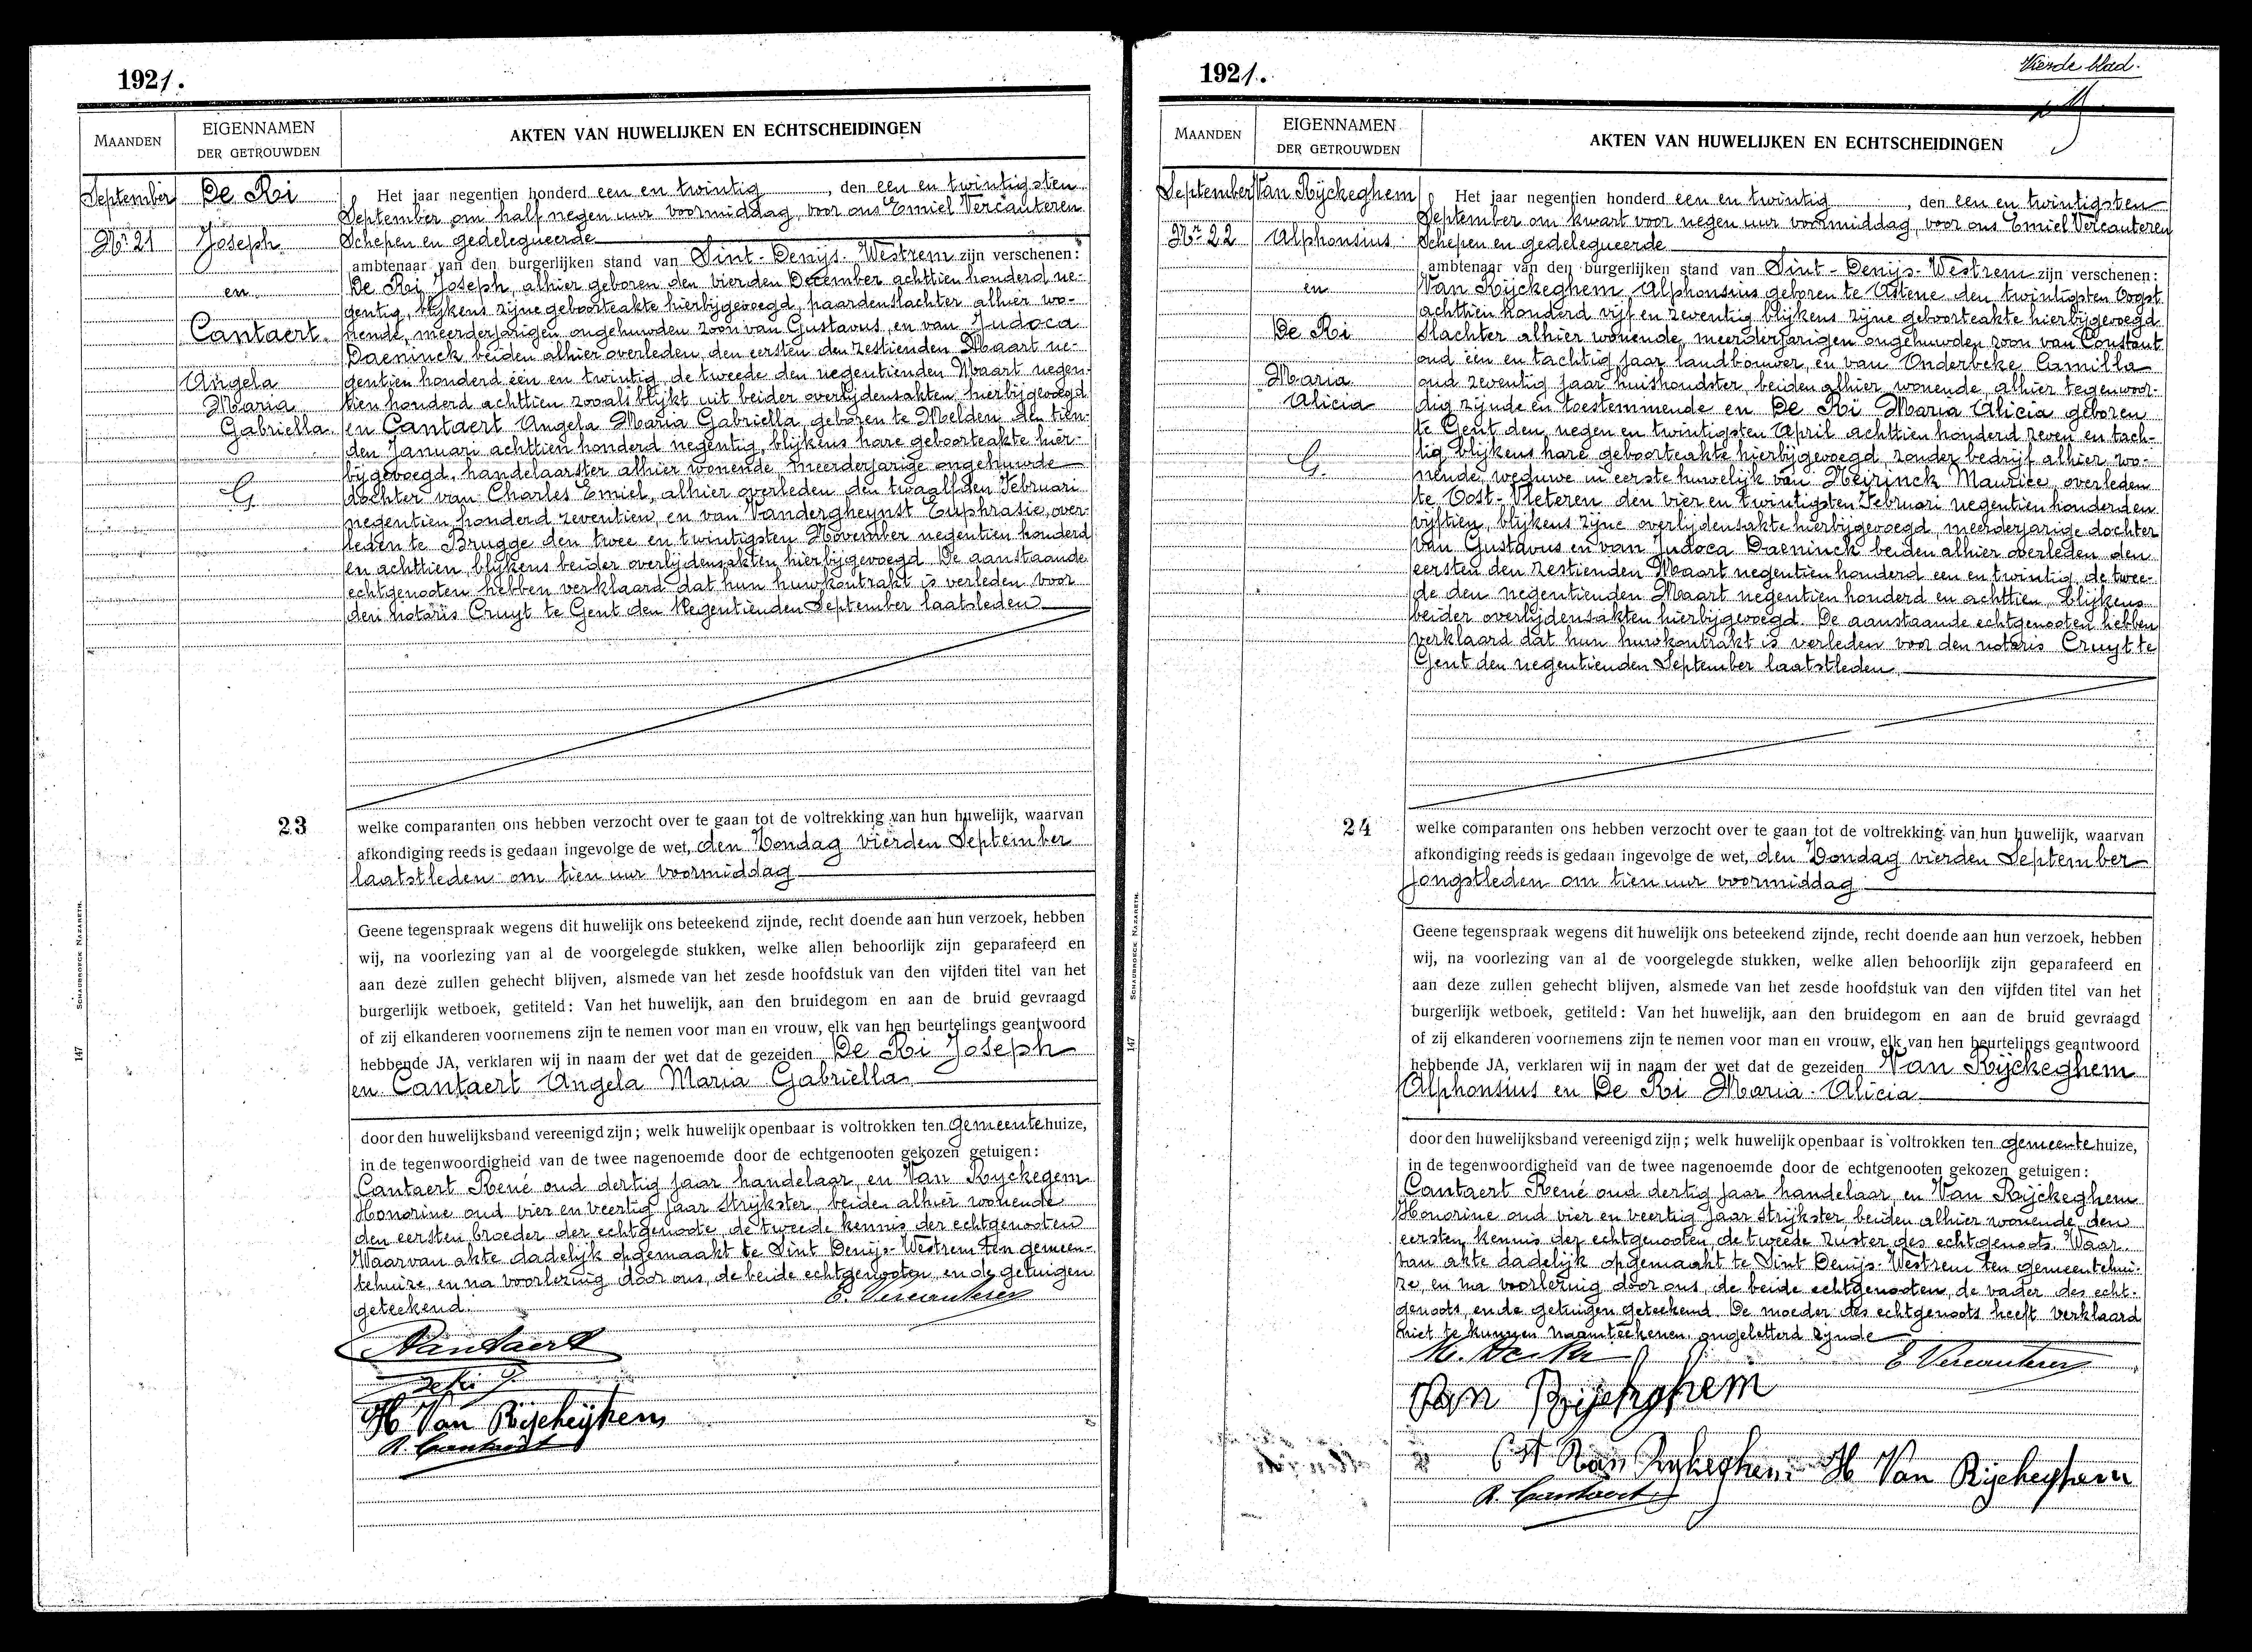 1921.
MAANDEN
EIGENNAMEN
DER GETROUWDEN
AKTEN VAN HUWELIJKEN EN ECHTSCHEIDINGEN
September
Nr 21
De Ri
Joseph
en
Cantaert.
Angela
Maria
Gabriella.
G.
Het jaar negentien honderd een en twintig, den een en twintigsten
September om half negen uur voormiddag, voor ons Emiel Vercauteren
Schepen en gedelegueerde
ambtenaar van den burgerlijken stand van Sint-Denijs-Westrem zijn verschenen:
De Ri Joseph, alhier geboren den vierden December achttien honderd ne-
gentig, blijkens zijne geboorteakte hierbijgevoegd, paardenslachter alhier wo-
nende, meerderjarigen ongehuwden zoon van Gustavus, en van Judoca
Daeninck beiden alhier overleden, den eersten den zestienden Maart ne-
gentien honderd één en twintig, de tweede den negentienden Maart negen-
tien honderd achttien zooals blijkt uit beider overlijdensakten hierbijgevoegd
en Cantaert Angela Maria Gabriella, geboren te Melden den tien-
den Januari achttien honderd negentig, blijkens hare geboorteakte hier-
bijgevoegd, handelaarster alhier wonende, meerderjarige ongehuwde
dochter van Charles Emiel, alhier overleden den twaalfden Februari
negentien honderd zeventien, en van Vandergheynst Euphrasie, over-
leden te Brugge den twee en twintigsten November negentien honderd
en achttien, blijkens beider overlijdensakten hierbijgevoegd. De aanstaande
echtgenooten hebben verklaard dat hun huwkontrakt is verleden voor
den notaris Cruyt te Gent den Negentienden September laatsleden
23
welke comparanten ons hebben verzocht over te gaan tot de voltrekking van hun huwelijk, waarvan
afkondiging reeds is gedaan ingevolge de wet, den Zondag vierden September
laatstleden om tien uur voormiddag
Geene tegenspraak wegens dit huwelijk ons beteekend zijnde, recht doende aan hun verzoek, hebben
wij, na voorlezing van al de voorgelegde stukken, welke allen behoorlijk zijn geparafeerd en
aan deze zullen gehecht blijven, alsmede van het zesde hoofdstuk van den vijfden titel van het
burgerlijk wetboek, getiteld: Van het huwelijk, aan den bruidegom en aan de bruid gevraagd
of zij elkanderen voornemens zijn te nemen voor man en vrouw, elk van hen beurtelings geantwoord
hebbende JA, verklaren wij in naam der wet dat de gezeiden De Ri Joseph
en Cantaert Angela Maria Gabriella
door den huwelijksband vereenigd zijn; welk huwelijk openbaar is voltrokken ten gemeentehuize,
in de tegenwoordigheid van de twee nagenoemde door de echtgenooten gekozen getuigen:
Cantaert René oud dertig jaar handelaar, en Van Ryckegem
Honorine oud vier en veertig jaar strijkster, beiden alhier wonende
den eersten broeder der echtgenoote, de tweede kennis der echtgenooten
Waarvan akte dadelijk opgemaakt te Sint Denijs-Westrem ten gemeen-
tehuize, en na voorlezing door ons, de beide echtgenooten, en de getuigen
geteekend.
E. Vercauteren
De Ri J
H Van Rijckeghem
R. Cantaert
147
SCHAUBROECK NAZARETH.
1921.
Vierde blad.
MAANDEN
EIGENNAMEN
DER GETROUWDEN
AKTEN VAN HUWELIJKEN EN ECHTSCHEIDINGEN
September
Nr 22
Van Rijckeghem
Alphonsius
en
De Ri
Maria
Alicia
G.
Het jaar negentien honderd een en twintig, den een en twintigsten
September om kwart voor negen uur voormiddag, voor ons Emiel Vercauteren
Schepen en gedelegueerde
ambtenaar van den burgerlijken stand van Sint-Denijs-Westrem zijn verschenen:
Van Rijckeghem Alphonsius geboren te Astene den twintigsten Oogst
achttien honderd vijf en zeventig blijkens zijne geboorteakte hierbijgevoegd
slachter alhier wonende, meerderjarigen ongehuwden zoon van Constant
oud één en tachtig jaar landbouwer, en van Onderbeke Camilla
oud zeventig jaar huishoudster, beiden alhier wonende, alhier tegenwoor-
dig zijnde en toestemmende en De Ri Maria Alicia geboren
te Gent den negen en twintigsten April achttien honderd zeven en tach-
tig blijkens hare geboorteakte hierbijgevoegd zonder bedrijf alhier wo-
nende, weduwe in eerste huwelijk van Heirinck Maurice, overleden
te Oost-Vleteren den vier en twintigsten Februari negentien honderden
vijftien, blijkens zijne overlijdensakte hierbijgevoegd, meerderjarige dochter
van Gustavus en van Judoca Daeninck beiden alhier overleden den
eersten den zestienden Maart negentien honderd een en twintig, de twee-
de den negentienden Maart negentien honderd en achttien, blijkens
beider overlijdensakten hierbijgevoegd. De aanstaande echtgenooten hebben
verklaard dat hun huwkontrakt is verleden voor den notaris Cruyt te
Gent den negentienden September laatstleden
24
welke comparanten ons hebben verzocht over te gaan tot de voltrekking van hun huwelijk, waarvan
afkondiging reeds is gedaan ingevolge de wet, den Zondag vierden September
jongstleden om tien uur voormiddag
Geene tegenspraak wegens dit huwelijk ons beteekend zijnde, recht doende aan hun verzoek, hebben
wij, na voorlezing van al de voorgelegde stukken, welke allen behoorlijk zijn geparafeerd en
aan deze zullen gehecht blijven, alsmede van het zesde hoofdstuk van den vijfden titel van het
burgerlijk wetboek, getiteld: Van het huwelijk, aan den bruidegom en aan de bruid gevraagd
of zij elkanderen voornemens zijn te nemen voor man en vrouw, elk van hen beurtelings geantwoord
hebbende JA, verklaren wij in naam der wet dat de gezeiden Van Rijckeghem
Alphonsius en De Ri Maria-Alicia
door den huwelijksband vereenigd zijn; welk huwelijk openbaar is voltrokken ten gemeentehuize,
in de tegenwoordigheid van de twee nagenoemde door de echtgenooten gekozen getuigen:
Cantaert René oud dertig jaar handelaar, en Van Rijckeghem
Honorine oud vier en veertig jaar strijkster, beiden alhier wonende, den
eersten kennis der echtgenooten, de tweede zuster des echtgenoots. Waar-
van akte dadelijk opgemaakt te Sint Denijs-Westrem ten gemeentehui-
ze, en na voorlezing door ons, de beide echtgenooten, de vader des echt-
genoots, en de getuigen geteekend. De moeder des echtgenoots heeft verklaard
niet te kunnen naamteekenen ongeletterd zijnde
M. De Ri
E Vercauteren
Van Rijckeghem
Cst Van Rykeghem H Van Rijckeghem
R. Cantaert
147
SCHAUBROECK NAZARETH.